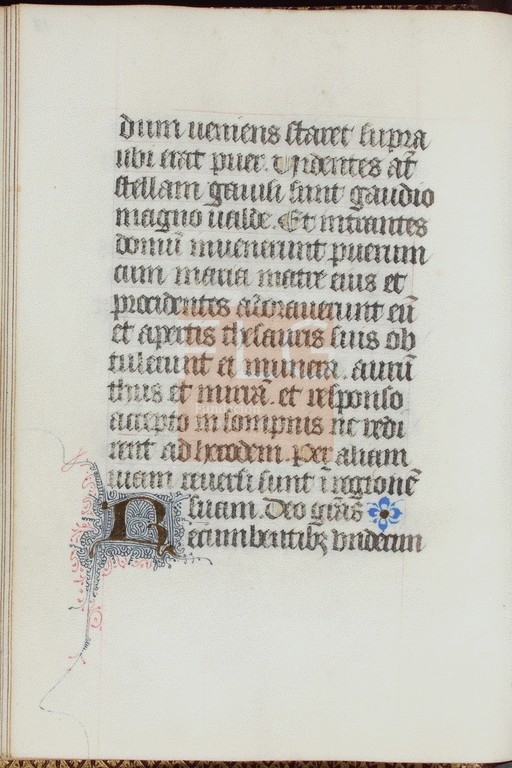 dum ueniens staret supra
ubi erat puer. Uidentes aũ
stellam gauisi sunt gaudio
magno ualde. Et intrantes
domũ inuenerunt puerum
cum maria matre eius et
procidentes adorauerunt eũ
et apertis thesauris suis ob
tulerunt ei munera. aurũ
thus et mirrã. et responso
accepto in sompnis ne redi
rent ad herodem. per aliam
uiam reuersi sunt ĩ regionẽ
suam. Deo grãs
Recumbentibꝫ undecim